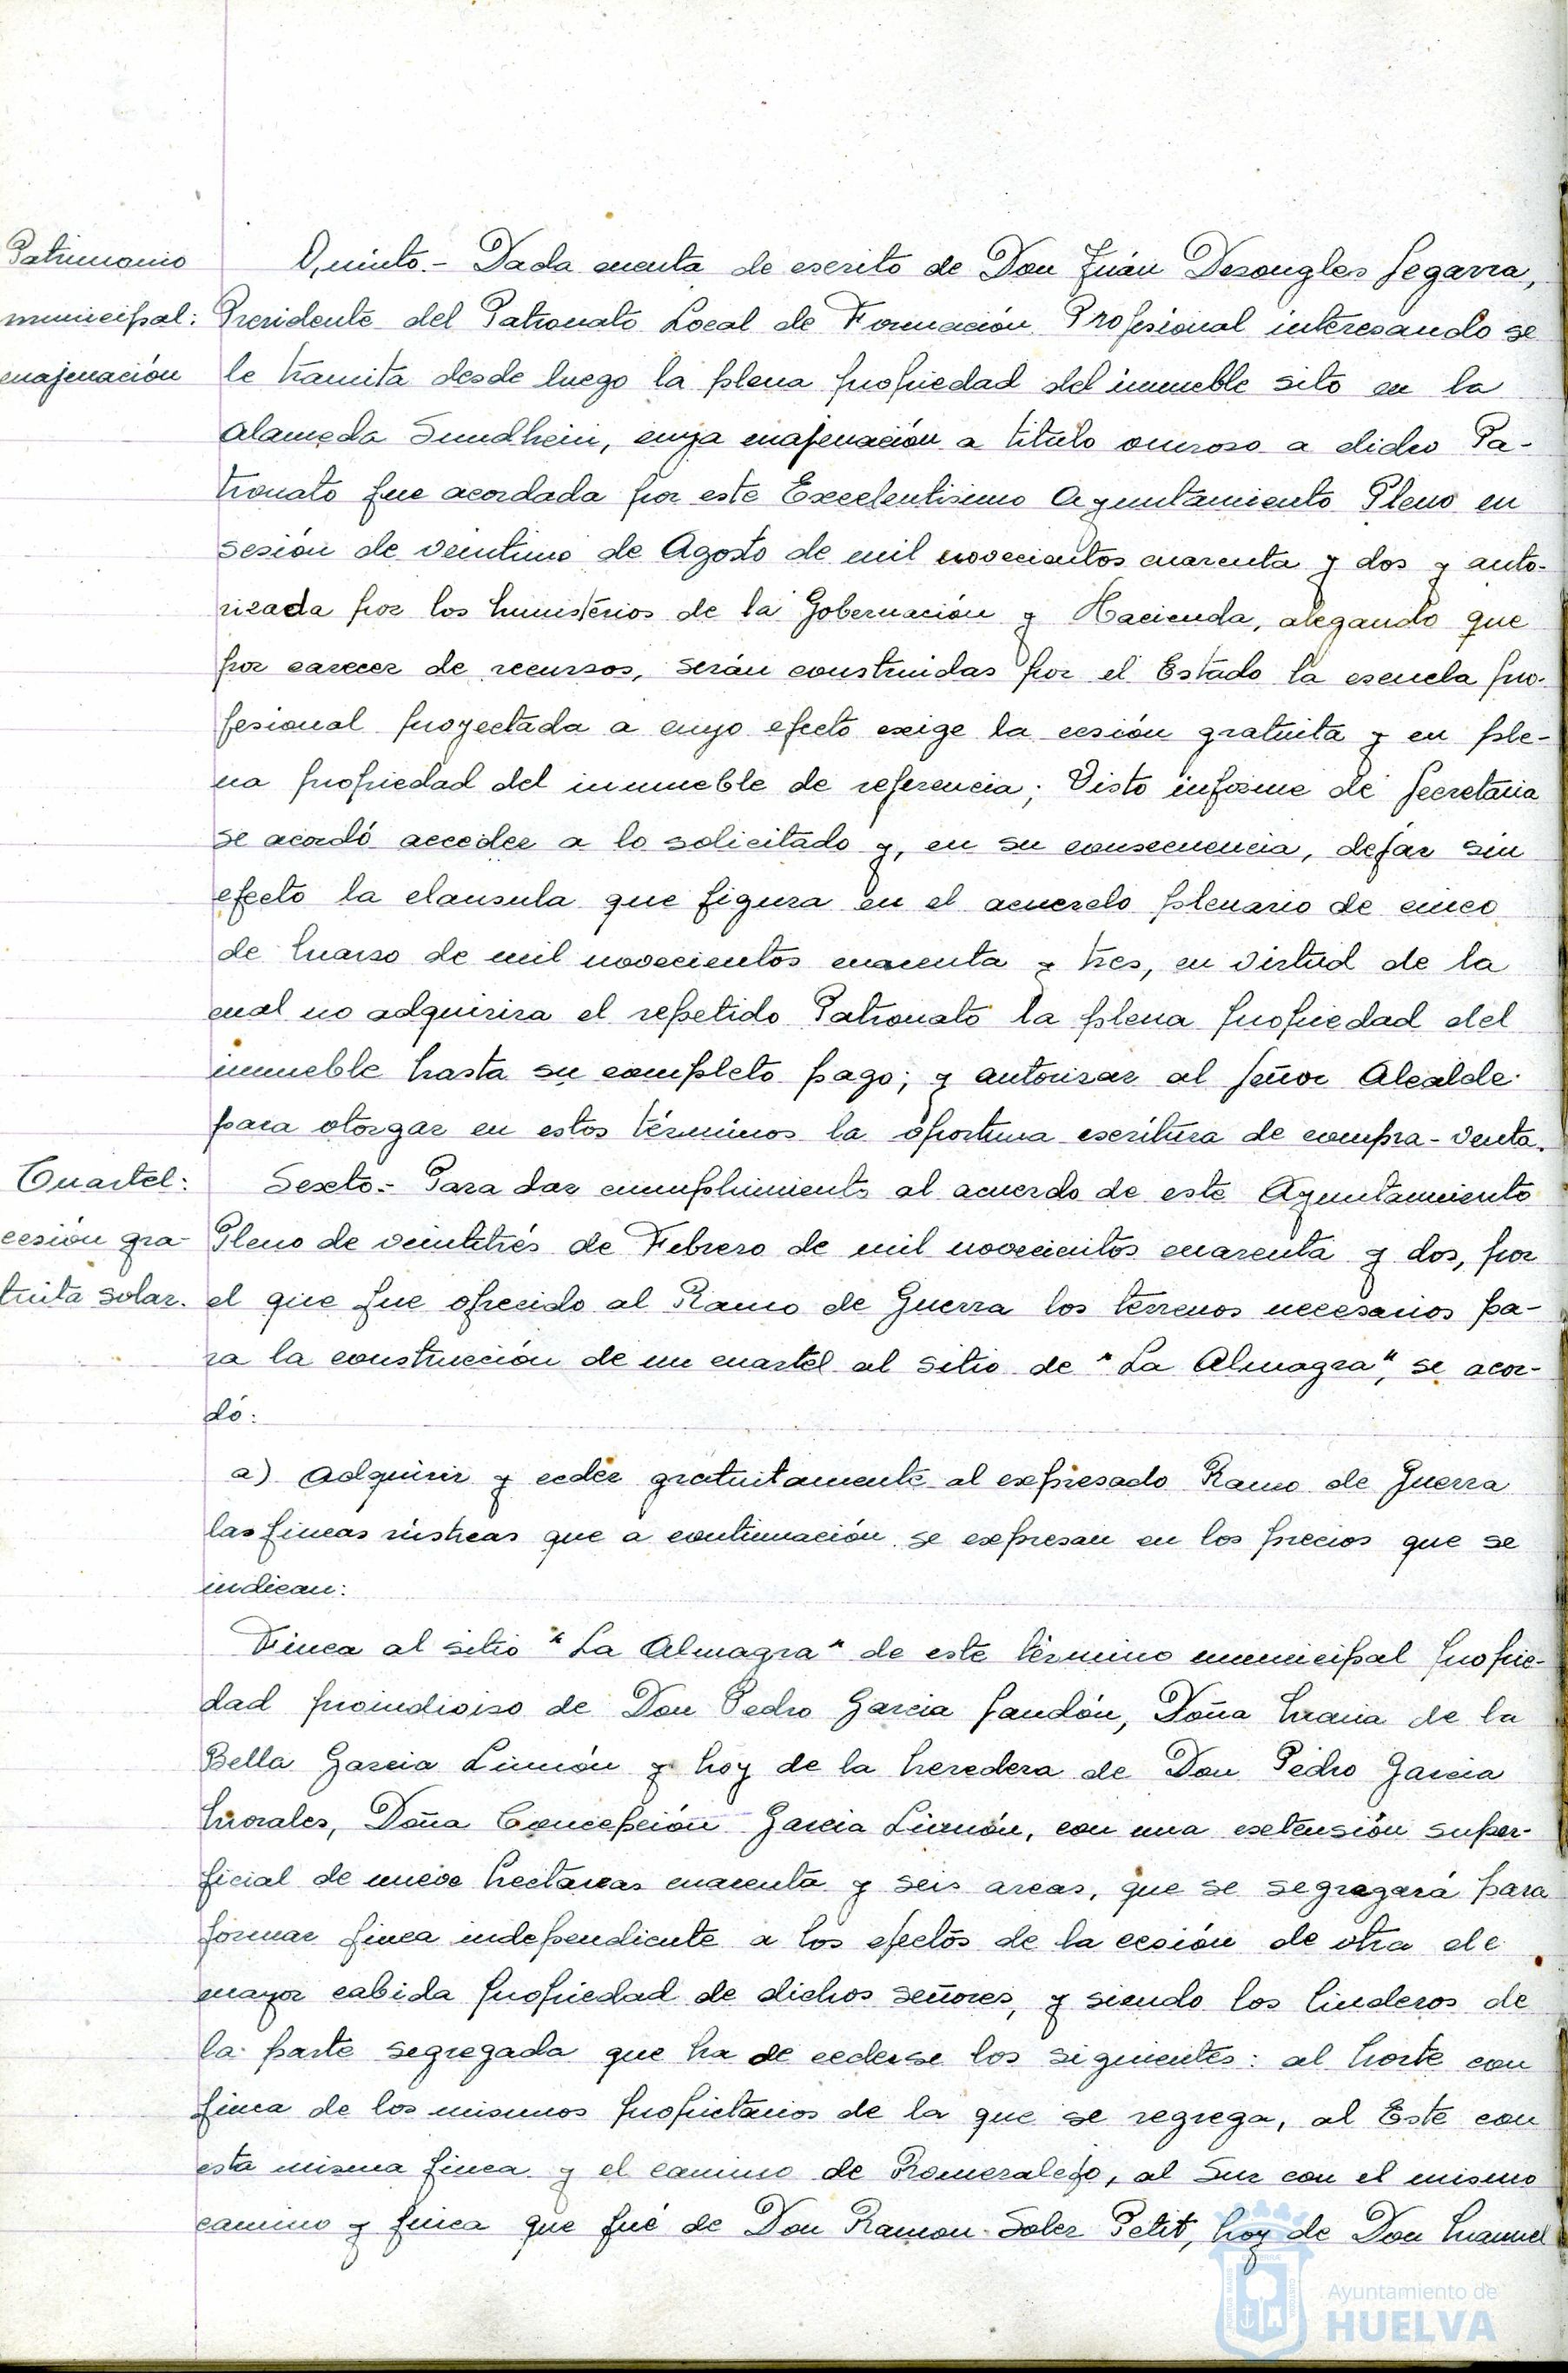 Patrimonio
municipal:
enajenación
Quinto.- Dada cuenta de escrito de Don Juán Desongles Segarra,
Presidente del Patronato Local de Formación Profesional interesando se
le tramita desde luego la plena propiedad del inmueble sito en la
Alameda Sundhein, cuya enajenación a titulo oneroso a dicho Pa-
tronato fue acordada por este Excelentisimo Ayuntamiento Pleno en
sesión de veintiuno de Agosto de mil novecientos cuarenta y dos y auto-
rizada por los Ministerios de la Gobernación y Hacienda, alegando que
por carecer de recursos, serán construidas por el Estado la escuela pro-
fesional proyectada a cuyo efecto exige la cesión gratuita y en ple-
na propiedad del inmueble de referencia; Visto informe de Secretaria
se acordó acceder a lo solicitado y, en su consecuencia, dejar sin
efecto la clausula que figura en el acuerdo plenario de cinco
de Marzo de mil novecientos cuarenta y tres, en virtud de la
cual no adquirira el repetido Patronato la plena propiedad del
inmueble hasta su completo pago; y autorizar al Señor Alcalde
para otorgar en estos términos la oportuna escritura de compra-venta.
Cuartel:
cesión gra-
tuita solar.
Sexto.- Para dar cumplimiento al acuerdo de este Ayuntamiento
Pleno de veintitrés de Febrero de mil novecientos cuarenta y dos, por
el que fue ofrecido al Ramo de Guerra los terrenos necesarios pa-
ra la construcción de un cuartel al sitio de "La Almagra", se acor-
dó:
a) Adquirir y ceder gratuitamente al expresado Ramo de Guerra
las fincas rústicas que a continuación se expresan en los precios que se
indican:
Finca al sitio "La Almagra" de este término municipal propie-
dad proindiviso de Don Pedro Garcia Jandón, Doña Maria de la
Bella Garcia Limón y hoy de la heredera de Don Pedro Garcia
Morales, Doña Concepción Garcia Limón, con una extensión super-
ficial de nueve hectareas cuarenta y seis areas, que se segregará para
formar finca independiente a los efectos de la cesión de otra de
mayor cabida propiedad de dichos señores, y siendo los linderos de
la parte segregada que ha de cederse los siguientes: al Norte con
finca de los mismos propietarios de la que se segrega, al Este con
esta misma finca y el camino de Romeralejo, al Sur con el mismo
camino y finca que fué de Don Ramon Soler Petit, hoy de Don Manuel
Ayuntamiento de
HUELVA